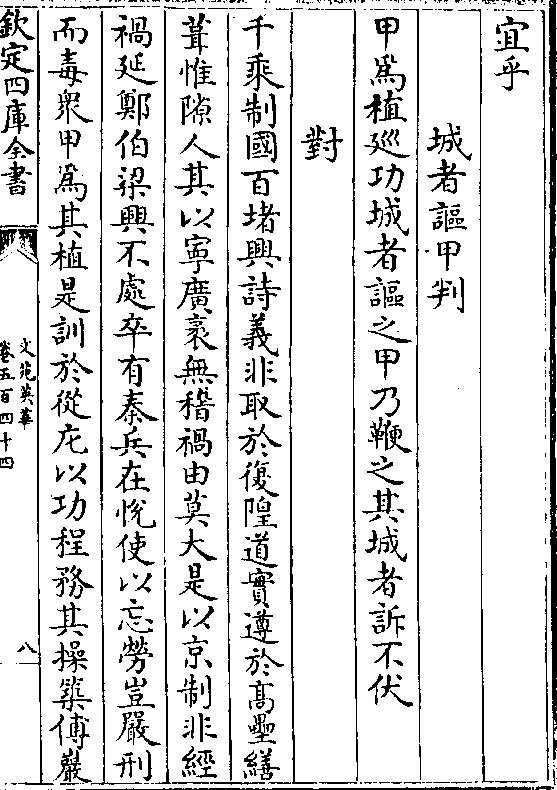 宜乎
城者謳甲判
甲爲植廵功城者謳之甲乃鞭之其城者訴不伏
對
千乘制國百堵興詩義非取於復隍道實遵於髙壘繕
葺惟隙人其以寧廣袤無稽禍由莫大是以京制非經
禍延鄭伯梁興不處卒有秦兵在恱使以忘勞豈嚴刑
而毒衆甲爲其植是訓於從庀以功程務其操築傅巖
欽定四庫全書
文苑英華
卷五百四十四
八